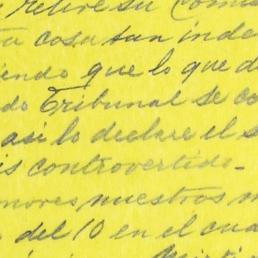 retire su Comis
ta cosa tan inde
iendo que lo que d
do Tribunal se co
asi lo declare el s
is controvertido.
nores nuestros m
del 10 en el cua